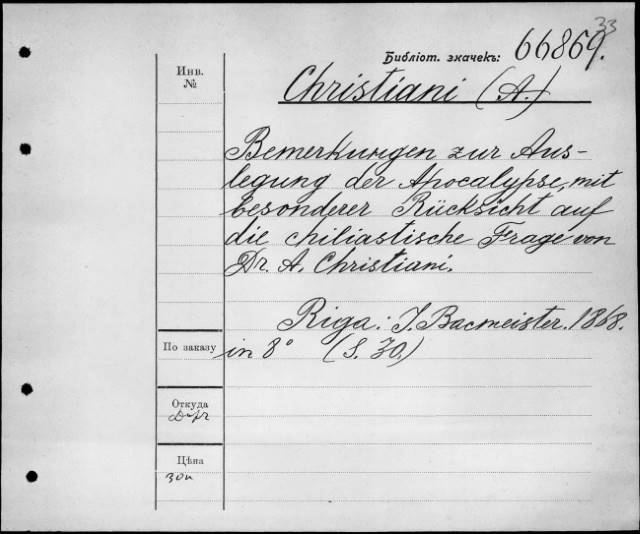 33
Библіот. значекъ: 66869.
Инв.
№
Christiani (A.)
Bemerkungen zur Aus-
legung der Apocalypse, mit
besonderer Rücksicht auf
die chiliastische Frage von
Dr. A. Christiani.
Riga: J. Bacmeister. 1868.
По заказу
in 8° (S. 30.)
Откуда
Цѣна
30к